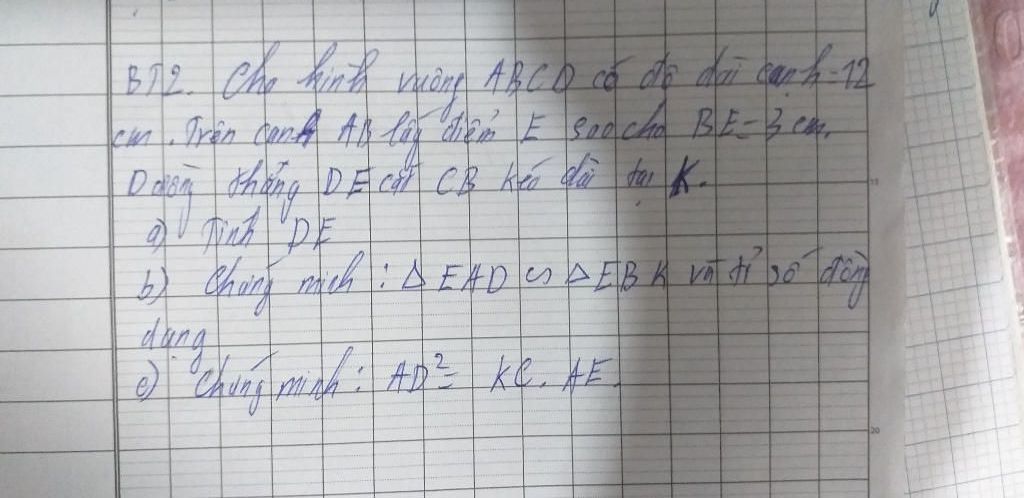 BT2. Cho hình vuông ABCD có độ dài cạnh = 12
cm. Trên cạnh AB lấy điểm E sao cho BE = 3 cm.
Đường thẳng DE cắt CB kéo dài tại K.
a) Tính DE
b) Chứng minh : Δ EAD ∽ Δ EBK và tỉ số đồng
dạng
c) Chứng minh : AD² = KC. AE.
11
20